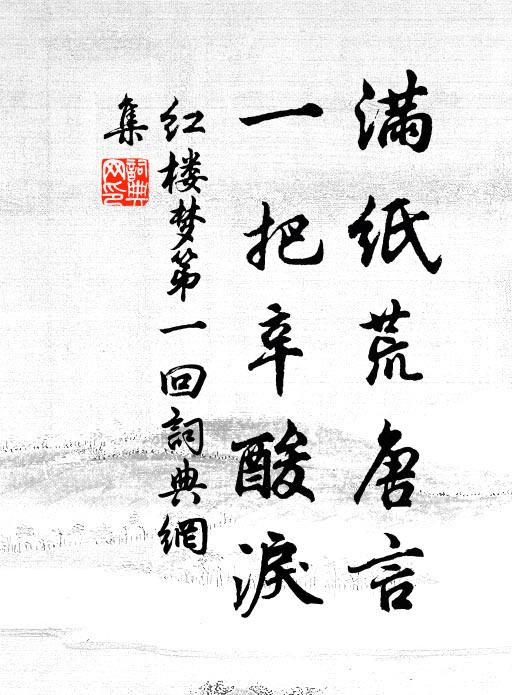 滿紙荒唐言
一把辛酸淚
红楼梦第一回詞典網
集
詞典
网印